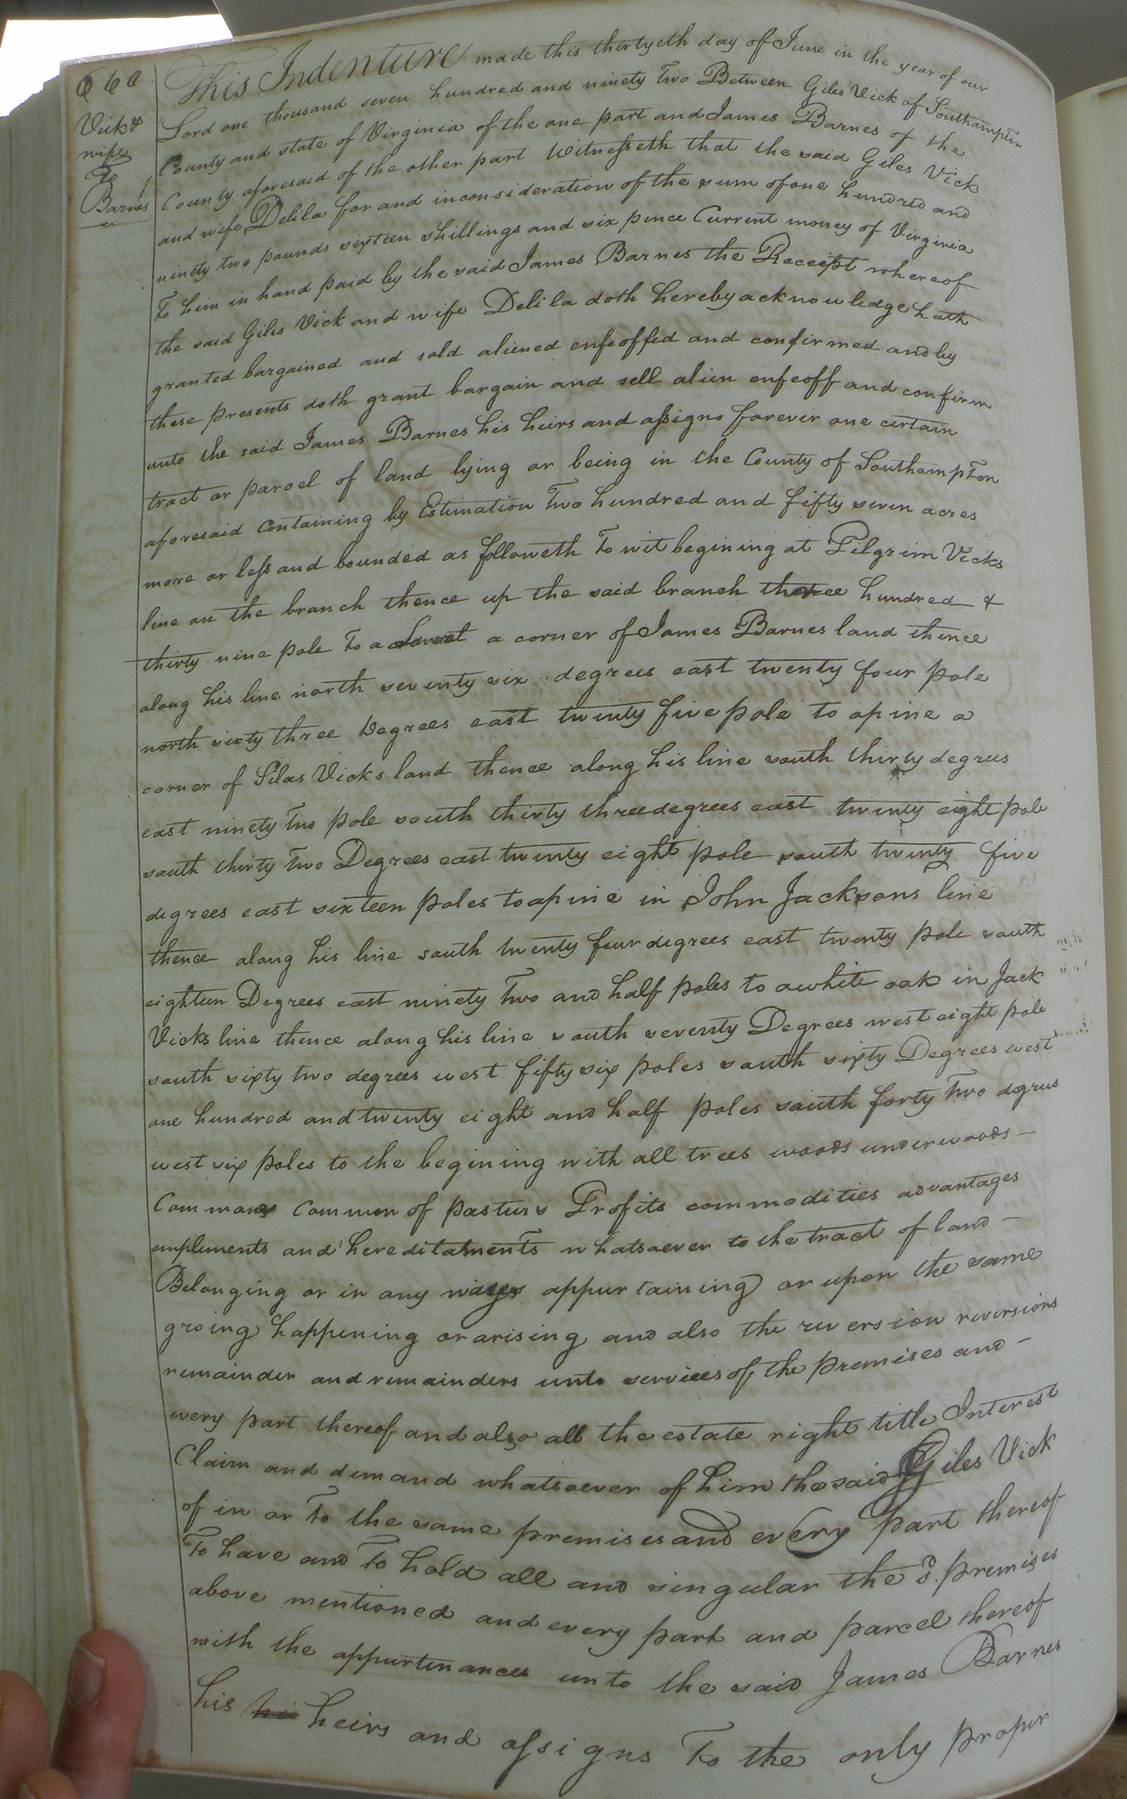 660
Vick &
wife
To
Barnes
This Indenture made this thirtyeth day of June in the year of our
Lord one thousand seven hundred and ninety two Between Giles Vick of Southampton
County and state of Virginia of the one part and James Barnes of the
County aforesaid of the other part Witnesseth that the said Giles Vick
and wife Delila for and inconsideration of the sum of one hundred and
ninety two pounds sixteen shillings and six pence Current money of Virginia
To him in hand paid by the said James Barnes the Receipt whereof
the said Giles Vick and wife Delila doth hereby acknowledge hath
granted bargained and sold aliened enfeoffed and confirmed and by
these presents doth grant bargain and sell alien enfeoff and confirm
unto the said James Barnes his heirs and assigns forever one certain
tract or parcel of land lying or being in the County of Southampton
aforesaid Containing by Estimation Two hundred and fifty seven acres
more or less and bounded as followeth To wit begining at Pilgrim Vicks
line on the branch thence up the said branch three hundred &
thirty nine pole To a a corner of James Barnes land thence
along his line north seventy six degrees east twenty four pole
north sixty three Degrees east twenty five pole to apine a
corner of Silas Vicks land thence along his line south thirty degrees
east ninety Two pole south thirty three degrees east twenty eight pole
south thirty two Degrees east twenty eight pole south twenty five
degrees east sixteen poles to apine in John Jacksons line
thence along his line south twenty four degrees east twenty pole south
eighteen Degrees east ninety Two and half poles to awhite oak in Jack
Vicks line thence along his line south seventy Degrees west eight pole
south sixty two degrees west fifty six poles south sixty Degrees west
one hundred and twenty eight and half poles south forty Two dgrees
west six poles to the begining with all trees woods underwoods —
Commons Common of pasture Profits commodities advantages
empluments and hereditatments whatsoever to the tract of land —
Belonging or in any ways appurtaining or upon the same
groing happening or arising and also the reversion reversions
remainder and remainders unto services of the premises and —
every part thereof and also all the estate right title Interest
Claim and demand whatsoever of him the said Giles Vick
of in or To the same premises and every part thereof
To have and To hold all and singular the sd. premises
above mentioned and every part and parcel thereof
with the appurtenances unto the said James Barnes
his hi heirs and assigns To the only proper